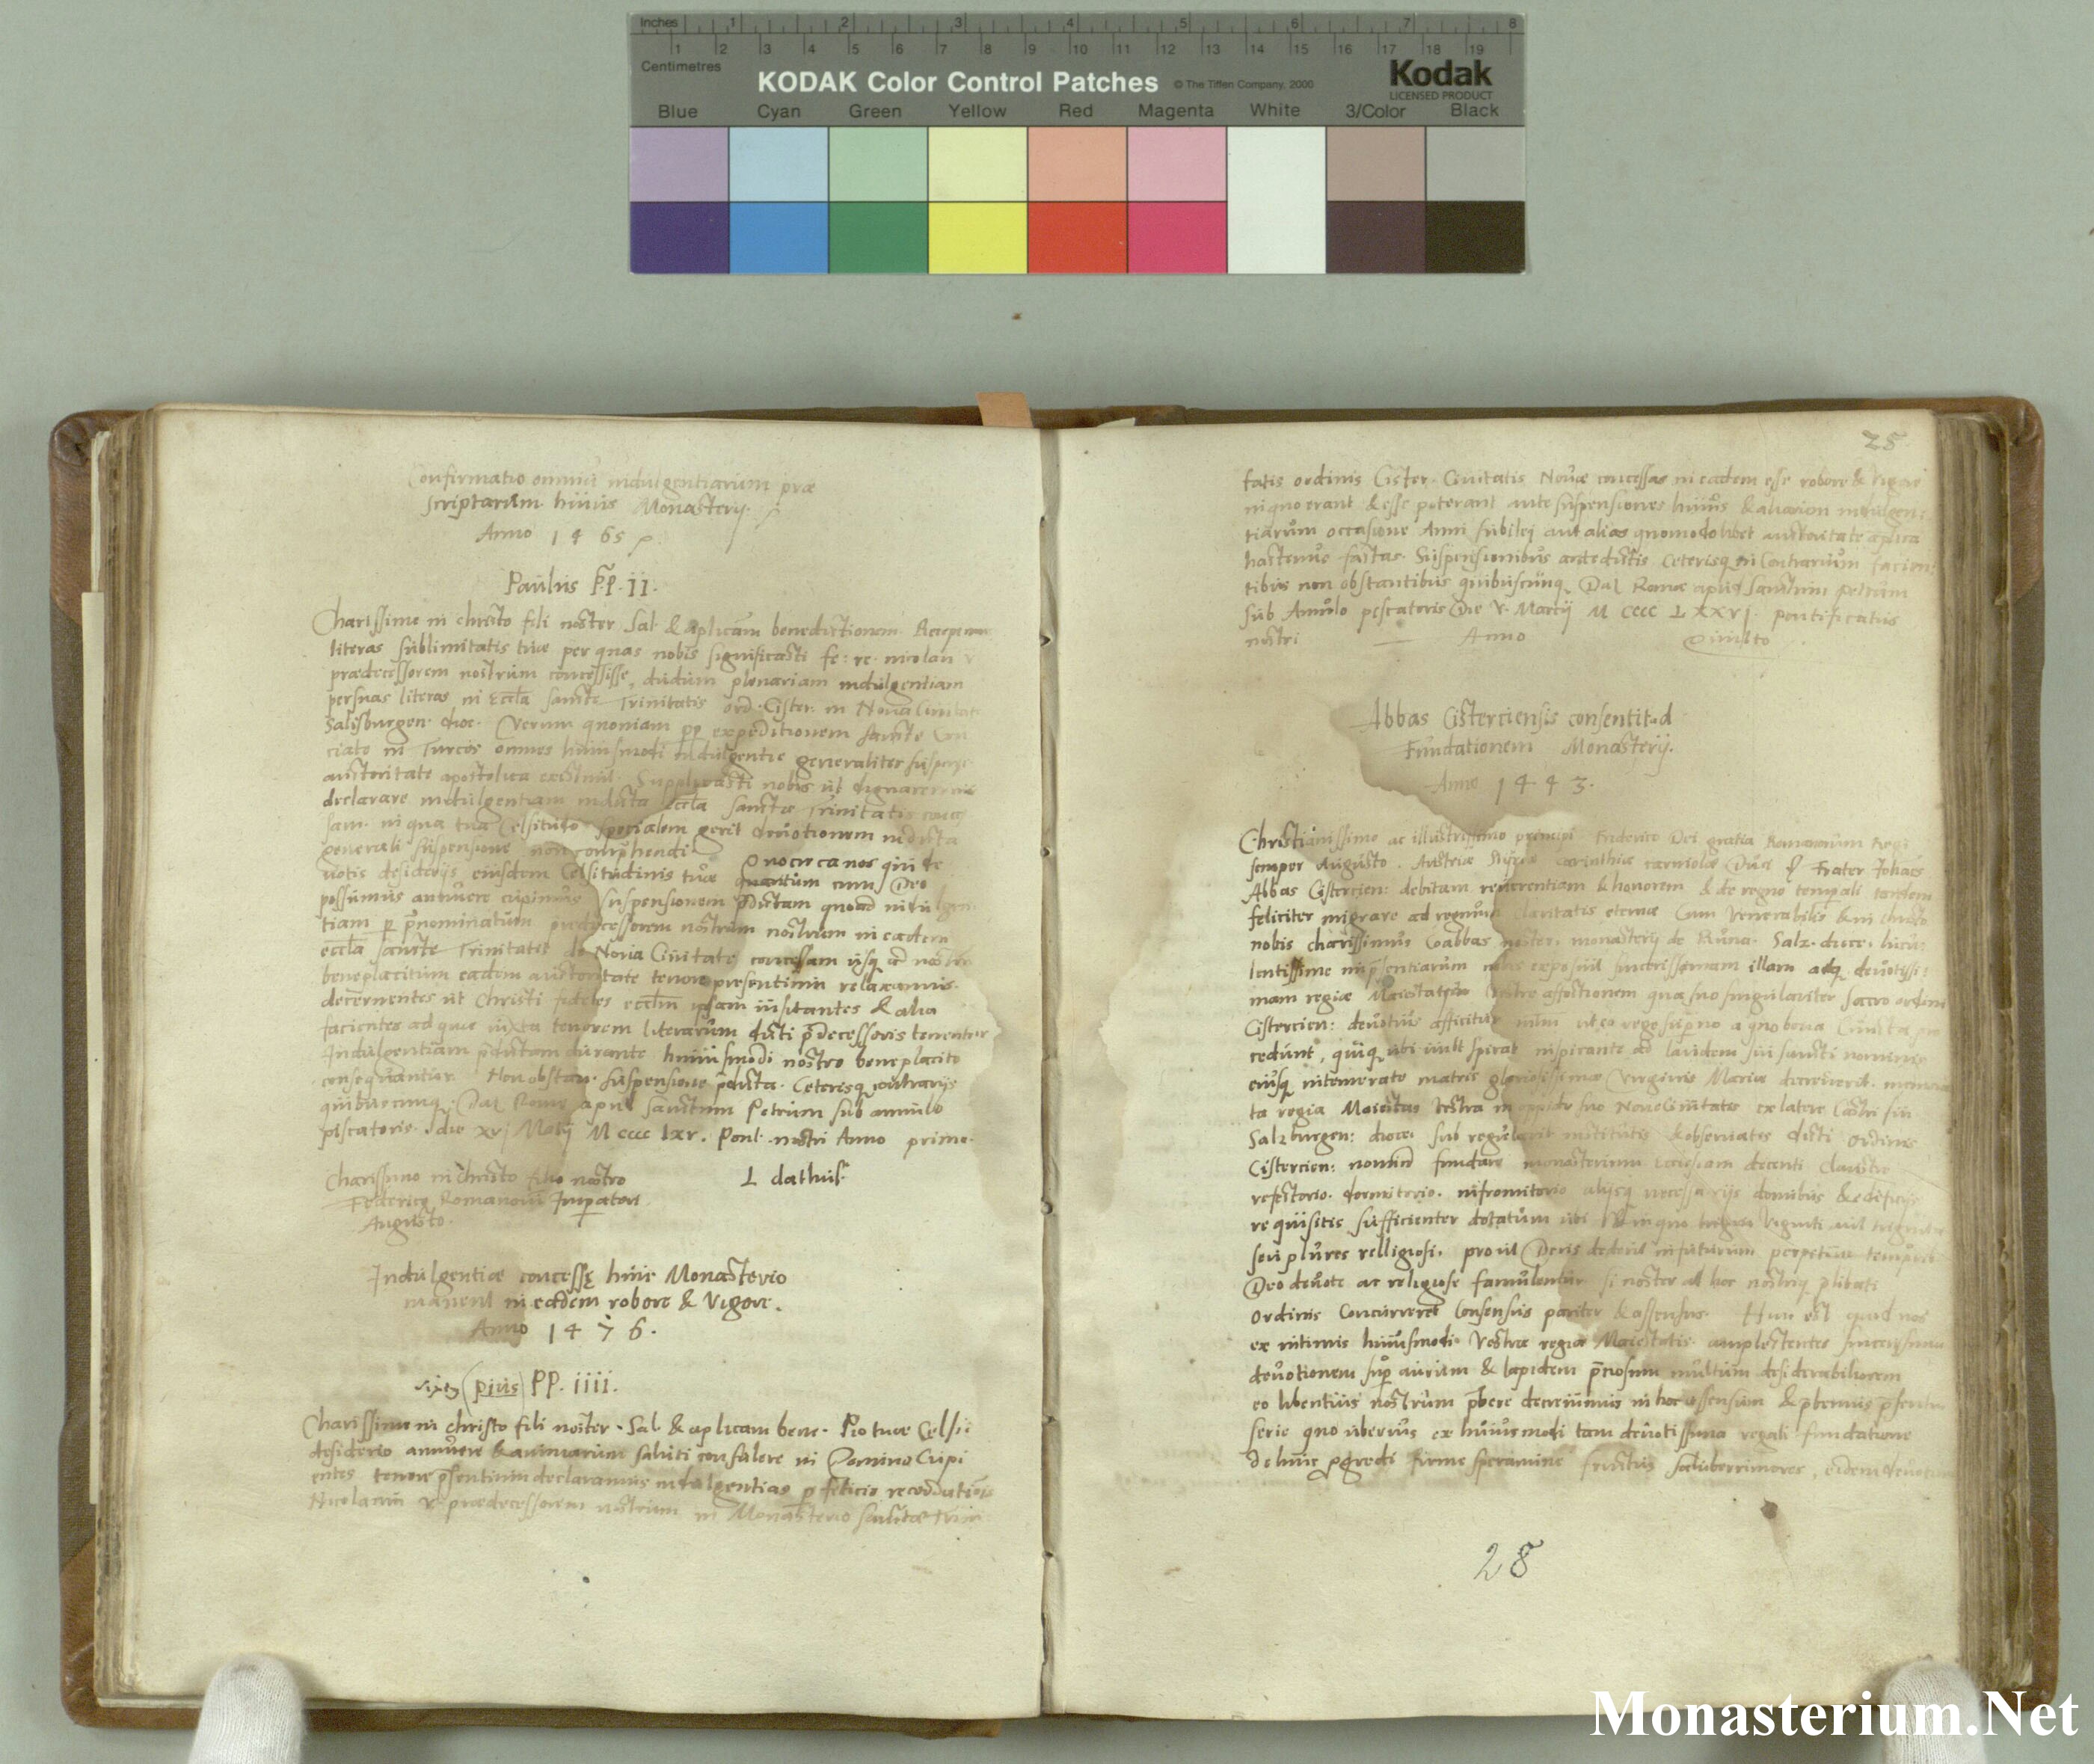 Inches 1 2 3 4 5 6 7 8
1 2 3 4 5 6 7 8 9 10 11 12 13 14 15 16 17 18 19
Centimetres
KODAK Color Control Patches © The Tiffen Company, 2000 Kodak
LICENSED PRODUCT
Blue Cyan Green Yellow Red Magenta White 3/Color Black
Confirmatio omniũ indulgentiarum præ
scriptarum huius Monasterij.
Anno 1465
Paulus P̃P. II.
Charissime in christo fili noster Sal & aplicam benedictionem. Recepimus
literas sublimitatis tuæ per quas nobis significasti fe: re: nicolau v
prædecessorem nostrum concessisse, dudum plenariam indulgentiam
per suas literas in Eccła sanctæ Trinitatis ord. Cister. in Noua Ciuitate
Salisburgen. dioc. Verum quoniam expeditionem
in Turcos omnes huiusmodi indulgentie generaliter suspense
auctoritate apostolica Supplicasti nobis ut
declarare indulgentiam indicta Eccła sanctæ Trinitatis
in qua tua Celsitudo specialem gerit deuotionem indicta
generali suspensione non comp̃hendi Quocirca nos qui de
uotis desiderijs eiusdem Celsitudinis tuæ quantum cum Deo
possumus annuere cupimus suspensionem p̃dictam quoad indulgen
tiam p̃nominatum prædecessorem nostrum nostrum in eadem
eccła sanctæ Trinitatis de Noua Ciuitate concessam usq̃ ad nostrũ
beneplacitum eadem auctoritate tenore presentium relaxamus.
decernentes ut Christi fideles eccłm ipsam uisitantes & alia
facientes ad quæ iuxta tenorem literarum dicti p̃decessoris tenentur
Indulgentiam p̃dictam durante huiusmodi nostro beneplacito
consequantur. Non obstan. suspensione p̃dicta. Ceterisq̃ contrarijs
quibuscunq̃. Dat Rome apud sanctum Petrum sub annulo
piscatoris. die xvj Maij M cccc lxv. Pont. nostri Anno primo.
Charissimo in Christo filio nostro L dathus
Federico Romanorũ Imperatori
Augusto.
Indulgentiæ concessę huic Monasterio
manent in eadem robore & Vigore.
Anno 1476.
(pius) PP. IIII.
Charissime in christo fili noster. Sal & aplicam bene. Pio tuæ Celsi:
desiderio annuere & animarum saluti consulere in Domino Cupi
entes tenore p̃sentium declaramus indulgentias p felicis recordationis
Nicolaum v. prædecessorem nostrum in Monasterio sanctæ Trini
25
tatis ordinis Cister. Ciuitatis Nouæ concessas in eadem esse robore & vigore
in quo erant & esse poterant ante suspensiones huius & aliarum indulgen:
tiarum occasione Anni Iubilej aut alias quomodolibet auctoritate aplica
hactenus factas. Suspensionibus antedictis Ceterisq̃ in Contrarium facien
tibus non obstantibus quibuscunq̃. Dat Romæ apud sanctum petrum
sub Annulo piscatoris Die v. Martij M cccc LXXVI. Pontificatus
nostri — Anno Quinto
Abbas Cisterciensis consentit ad
Fundationem Monasterij.
Anno 1443.
Christianissimo ac illustrissimo principi Friderico Dei gratia Romanorum Regi
semper Augusto. Austriæ Styriæ Carinthiæ carniolæ Duci Frater Johães
Abbas Cistercien: debitam reuerentiam & honorem & de regno temp̃ali tandem
feliciter migrare ad regnum claritatis eternæ Cum Venerabilis & in Christo
nobis charissimus Coabbas noster monasterij de Runa. Salz. dioce. lucu
lentissime in p̃sentiarum nobis exposuit sincerissimam illam adq̃ deuotissi
mam regiæ Maiestatis Vestræ affectionem qua suo singulariter sacro ordini
Cistercien: deuotius afficitur a quo bona Cuncta pro
cedunt, quiq̃ ubi uult spirat inspirante ad laudem sui sancti nominis
eiusq̃ intemerate matris gloriosissimæ Virginis Mariæ decreuerit.
ta regia Maiestas Vestra in oppido suo Noue Ciuitatis ex latere Castri sui
Salzburgen: dioce. sub regularib institutis & obseruatis dicti Ordinis
Cistercien: fundare monasterium Ecclesiam decenti Claustro
refectorio. dormitorio. infirmitorio alijsq̃ necessarijs domibus & edificijs
requisitis sufficienter dotatum ubi in quo Viginti uel triginta
seu plures relligiosi. prout Deus dederit in futurum perpetuis temporib
Deo deuote ac religiose famulentur si noster ad hoc nostriq̃
Ordinis Concurreret Consensus pariter & assensus. Hinc est quod nos
ex intimis huiusmodi Vestræ regiæ Maiestatis amplectentes sincerissimã
deuotionem sup̃ aurum & lapidem p̃ciosum multum desiderabiliorem
eo libentius nostrum p̃bere decreuimus in hoc assensum & p̃bemus p̃sentiũ
serie quo uberius ex huiusmodi tam deuotissima regali fundatione
dehinc p̃gredi firme speramine fructus saluberrimores, eidem deuotioni
28
Monasterium.Net